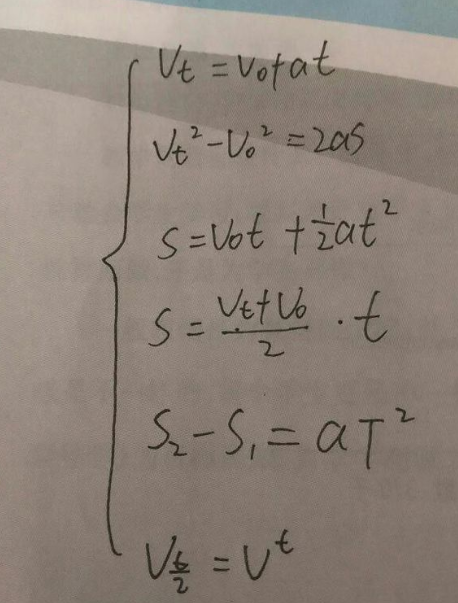 Vt = V0 + at
Vt² - V0² = 2as
S = V0t + ½at²
S = (Vt + V0)/2 · t
S₂ - S₁ = aT²
V_(t/2) = V^t